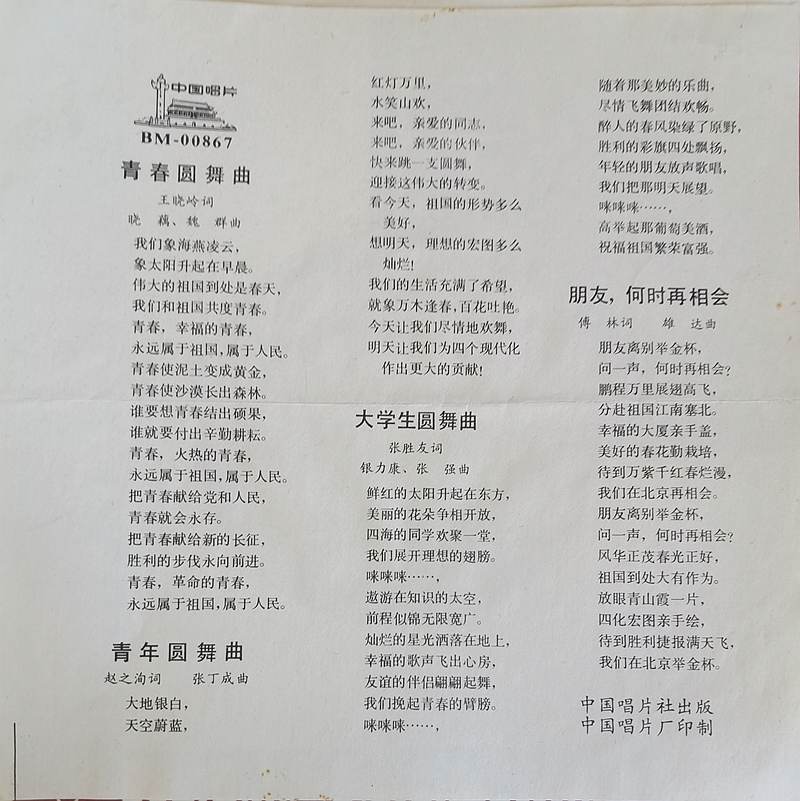 中国唱片
BM-00867
青春圆舞曲
王晓岭词
晓 藕、魏 群曲
我们象海燕凌云，
象太阳升起在早晨。
伟大的祖国到处是春天，
我们和祖国共度青春。
青春，幸福的青春，
永远属于祖国，属于人民。
青春使泥土变成黄金，
青春使沙漠长出森林。
谁要想青春结出硕果，
谁就要付出辛勤耕耘。
青春，火热的青春，
永远属于祖国，属于人民。
把青春献给党和人民，
青春就会永存。
把青春献给新的长征，
胜利的步伐永向前进。
青春，革命的青春，
永远属于祖国，属于人民。
青年圆舞曲
赵之洵词 张丁成曲
大地银白，
天空蔚蓝，
红灯万里，
水笑山欢，
来吧，亲爱的同志，
来吧，亲爱的伙伴，
快来跳一支圆舞，
迎接这伟大的转变。
看今天，祖国的形势多么
美好，
想明天，理想的宏图多么
灿烂！
我们的生活充满了希望，
就象万木逢春，百花吐艳。
今天让我们尽情地欢舞，
明天让我们为四个现代化
作出更大的贡献！
大学生圆舞曲
张胜友词
银力康、张 强曲
鲜红的太阳升起在东方，
美丽的花朵争相开放，
四海的同学欢聚一堂，
我们展开理想的翅膀。
咪咪咪……，
遨游在知识的太空，
前程似锦无限宽广。
灿烂的星光洒落在地上，
幸福的歌声飞出心房，
友谊的伴侣翩翩起舞，
我们挽起青春的臂膀。
咪咪咪……，
随着那美妙的乐曲，
尽情飞舞团结欢畅。
醉人的春风染绿了原野，
胜利的彩旗四处飘扬，
年轻的朋友放声歌唱，
我们把那明天展望。
咪咪咪……，
高举起那葡萄美酒，
祝福祖国繁荣富强。
朋友，何时再相会
傅 林词 雄 达曲
朋友离别举金杯，
问一声，何时再相会？
鹏程万里展翅高飞，
分赴祖国江南塞北。
幸福的大厦亲手盖，
美好的春花勤栽培，
待到万紫千红春烂漫，
我们在北京再相会。
朋友离别举金杯，
问一声，何时再相会？
风华正茂春光正好，
祖国到处大有作为。
放眼青山霞一片，
四化宏图亲手绘，
待到胜利捷报满天飞，
我们在北京举金杯。
中国唱片社出版
中国唱片厂印制